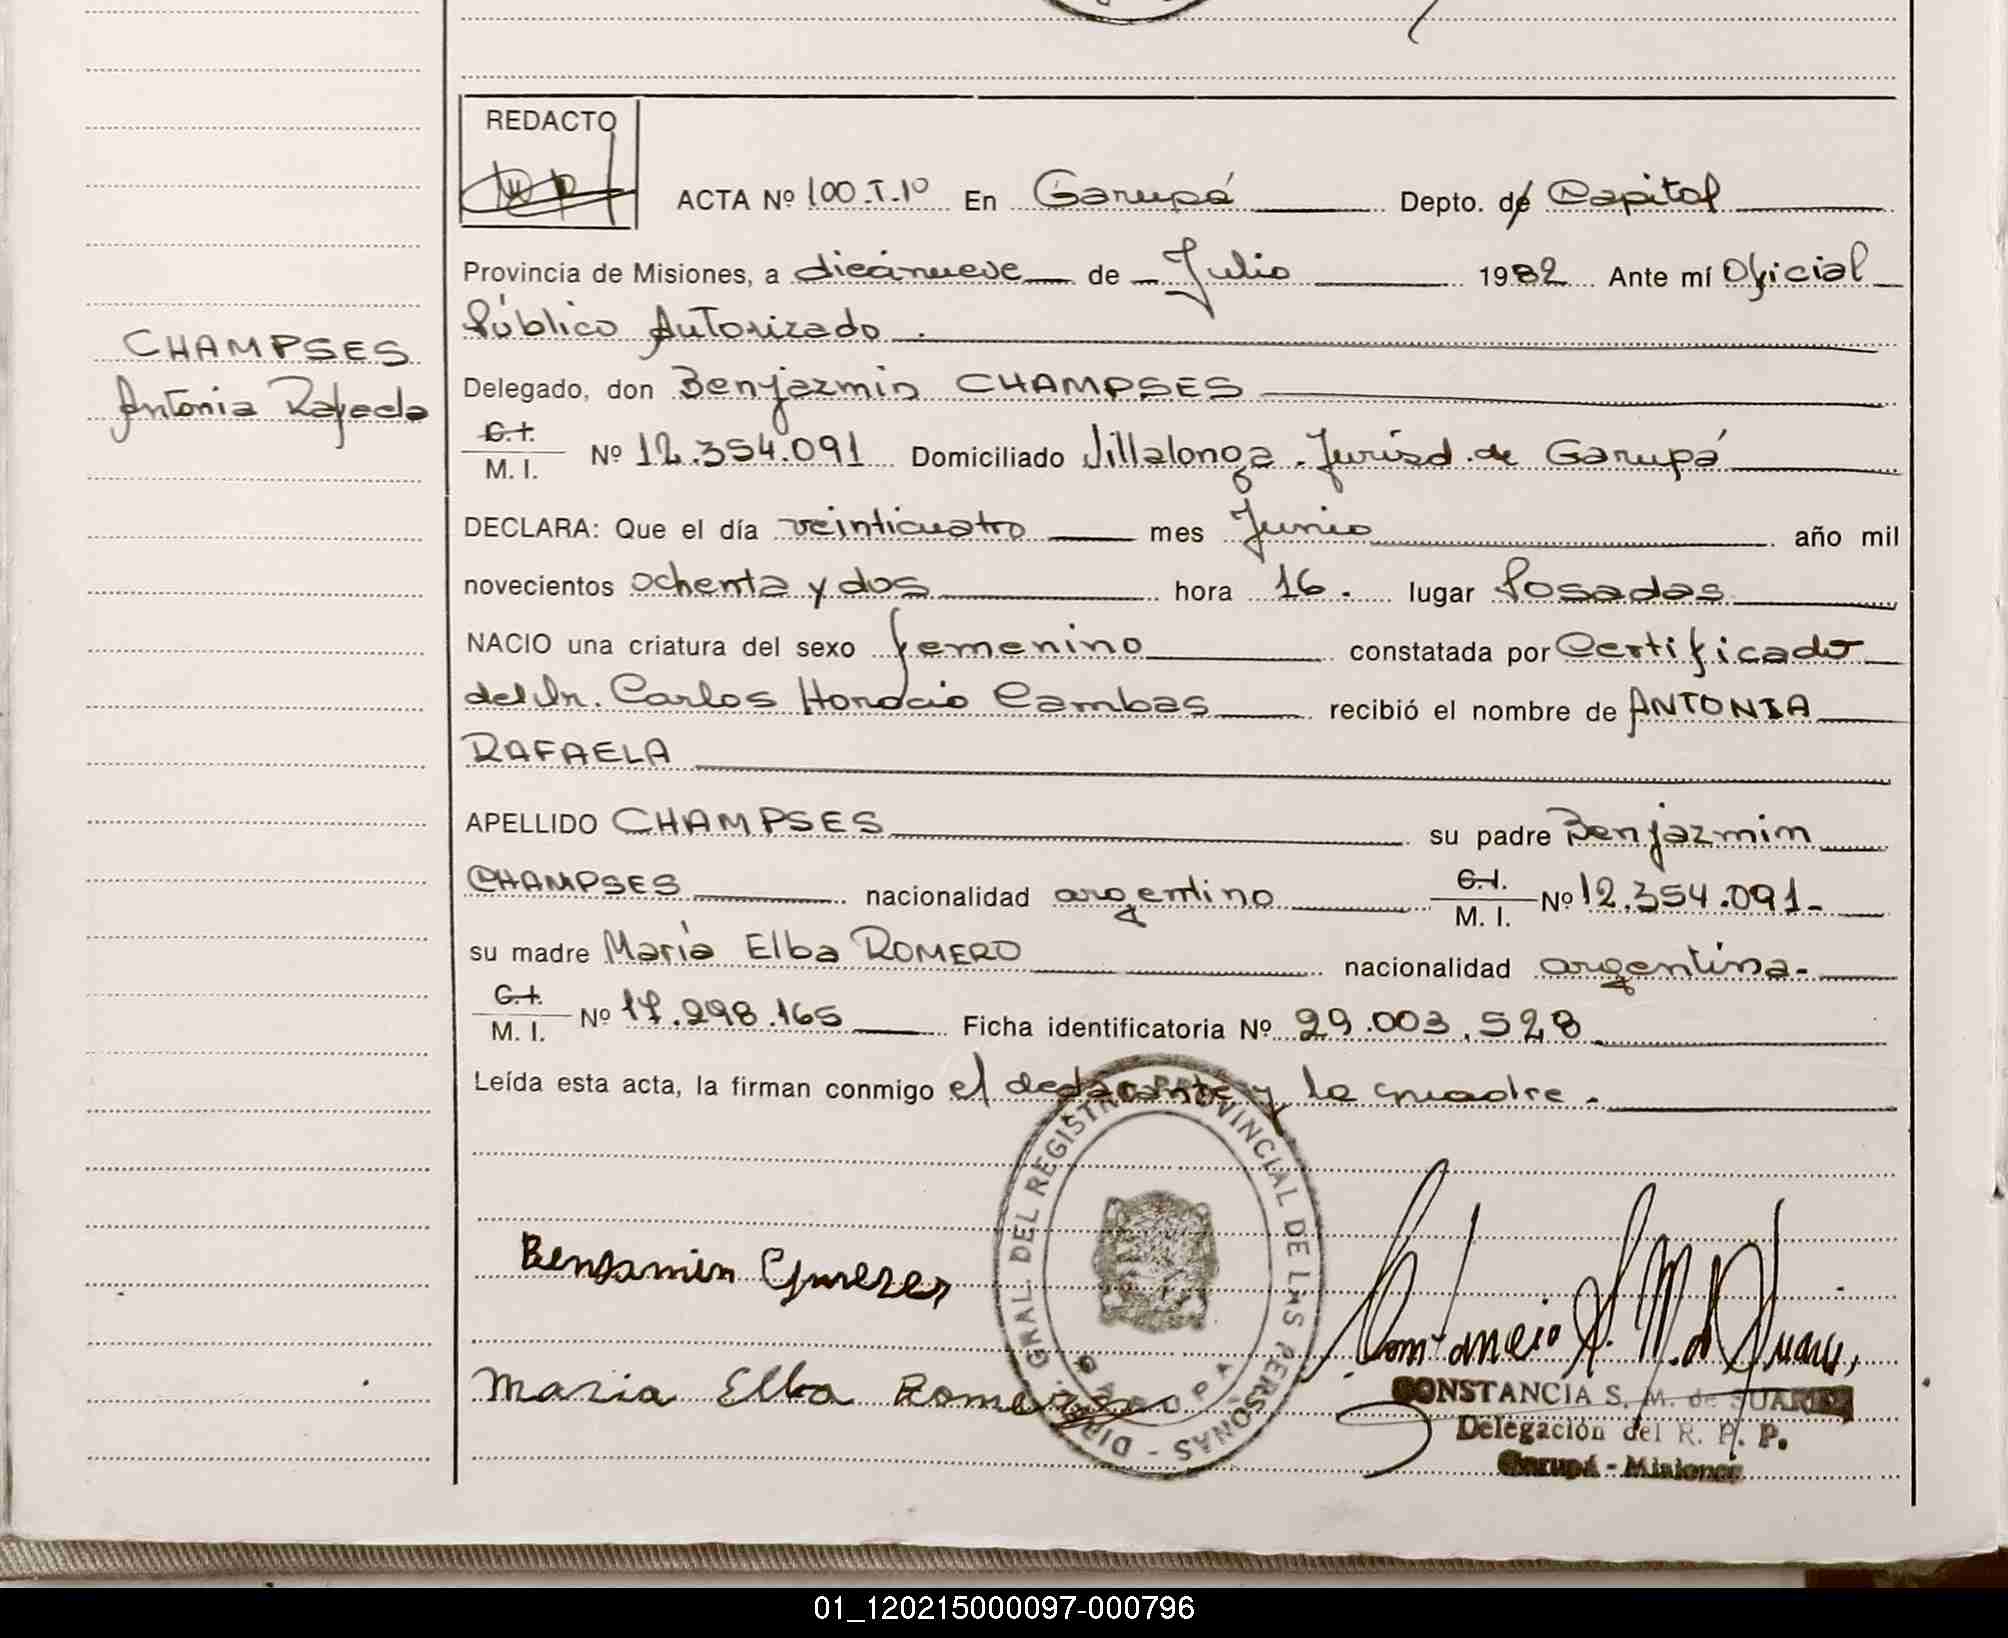 REDACTO
ACTA Nº 100.T.1º En Garupá Depto. de Capital
Provincia de Misiones, a diecinueve de Julio 1982 Ante mí Oficial
Público Autorizado.
CHAMPSES
Antonia Rafaela
Delegado, don Benjazmin CHAMPSES
C.I.
M. I. Nº 12.354.091 Domiciliado Villalonga. Jurisd. de Garupá
DECLARA: Que el día veinticuatro mes Junio año mil
novecientos ochenta y dos hora 16. lugar Posadas
NACIO una criatura del sexo femenino constatada por Certificado
del Dr. Carlos Horacio Cambas recibió el nombre de ANTONIA
RAFAELA
APELLIDO CHAMPSES su padre Benjazmin
CHAMPSES nacionalidad argentino C.I. M. I. Nº 12.354.091-
su madre María Elba ROMERO nacionalidad argentina-
C.I.
M. I. Nº 17.298.165 Ficha identificatoria Nº 29.003.528
Leída esta acta, la firman conmigo el declarante y la madre.
DIR. GRAL. DEL REGISTRO PROVINCIAL DE LAS PERSONAS -
GARUPA
Benjamin
Maria Elba Romero
CONSTANCIA S. M. de SUAREZ
Delegación del R. P. P.
Garupá - Misiones
01_120215000097-000796